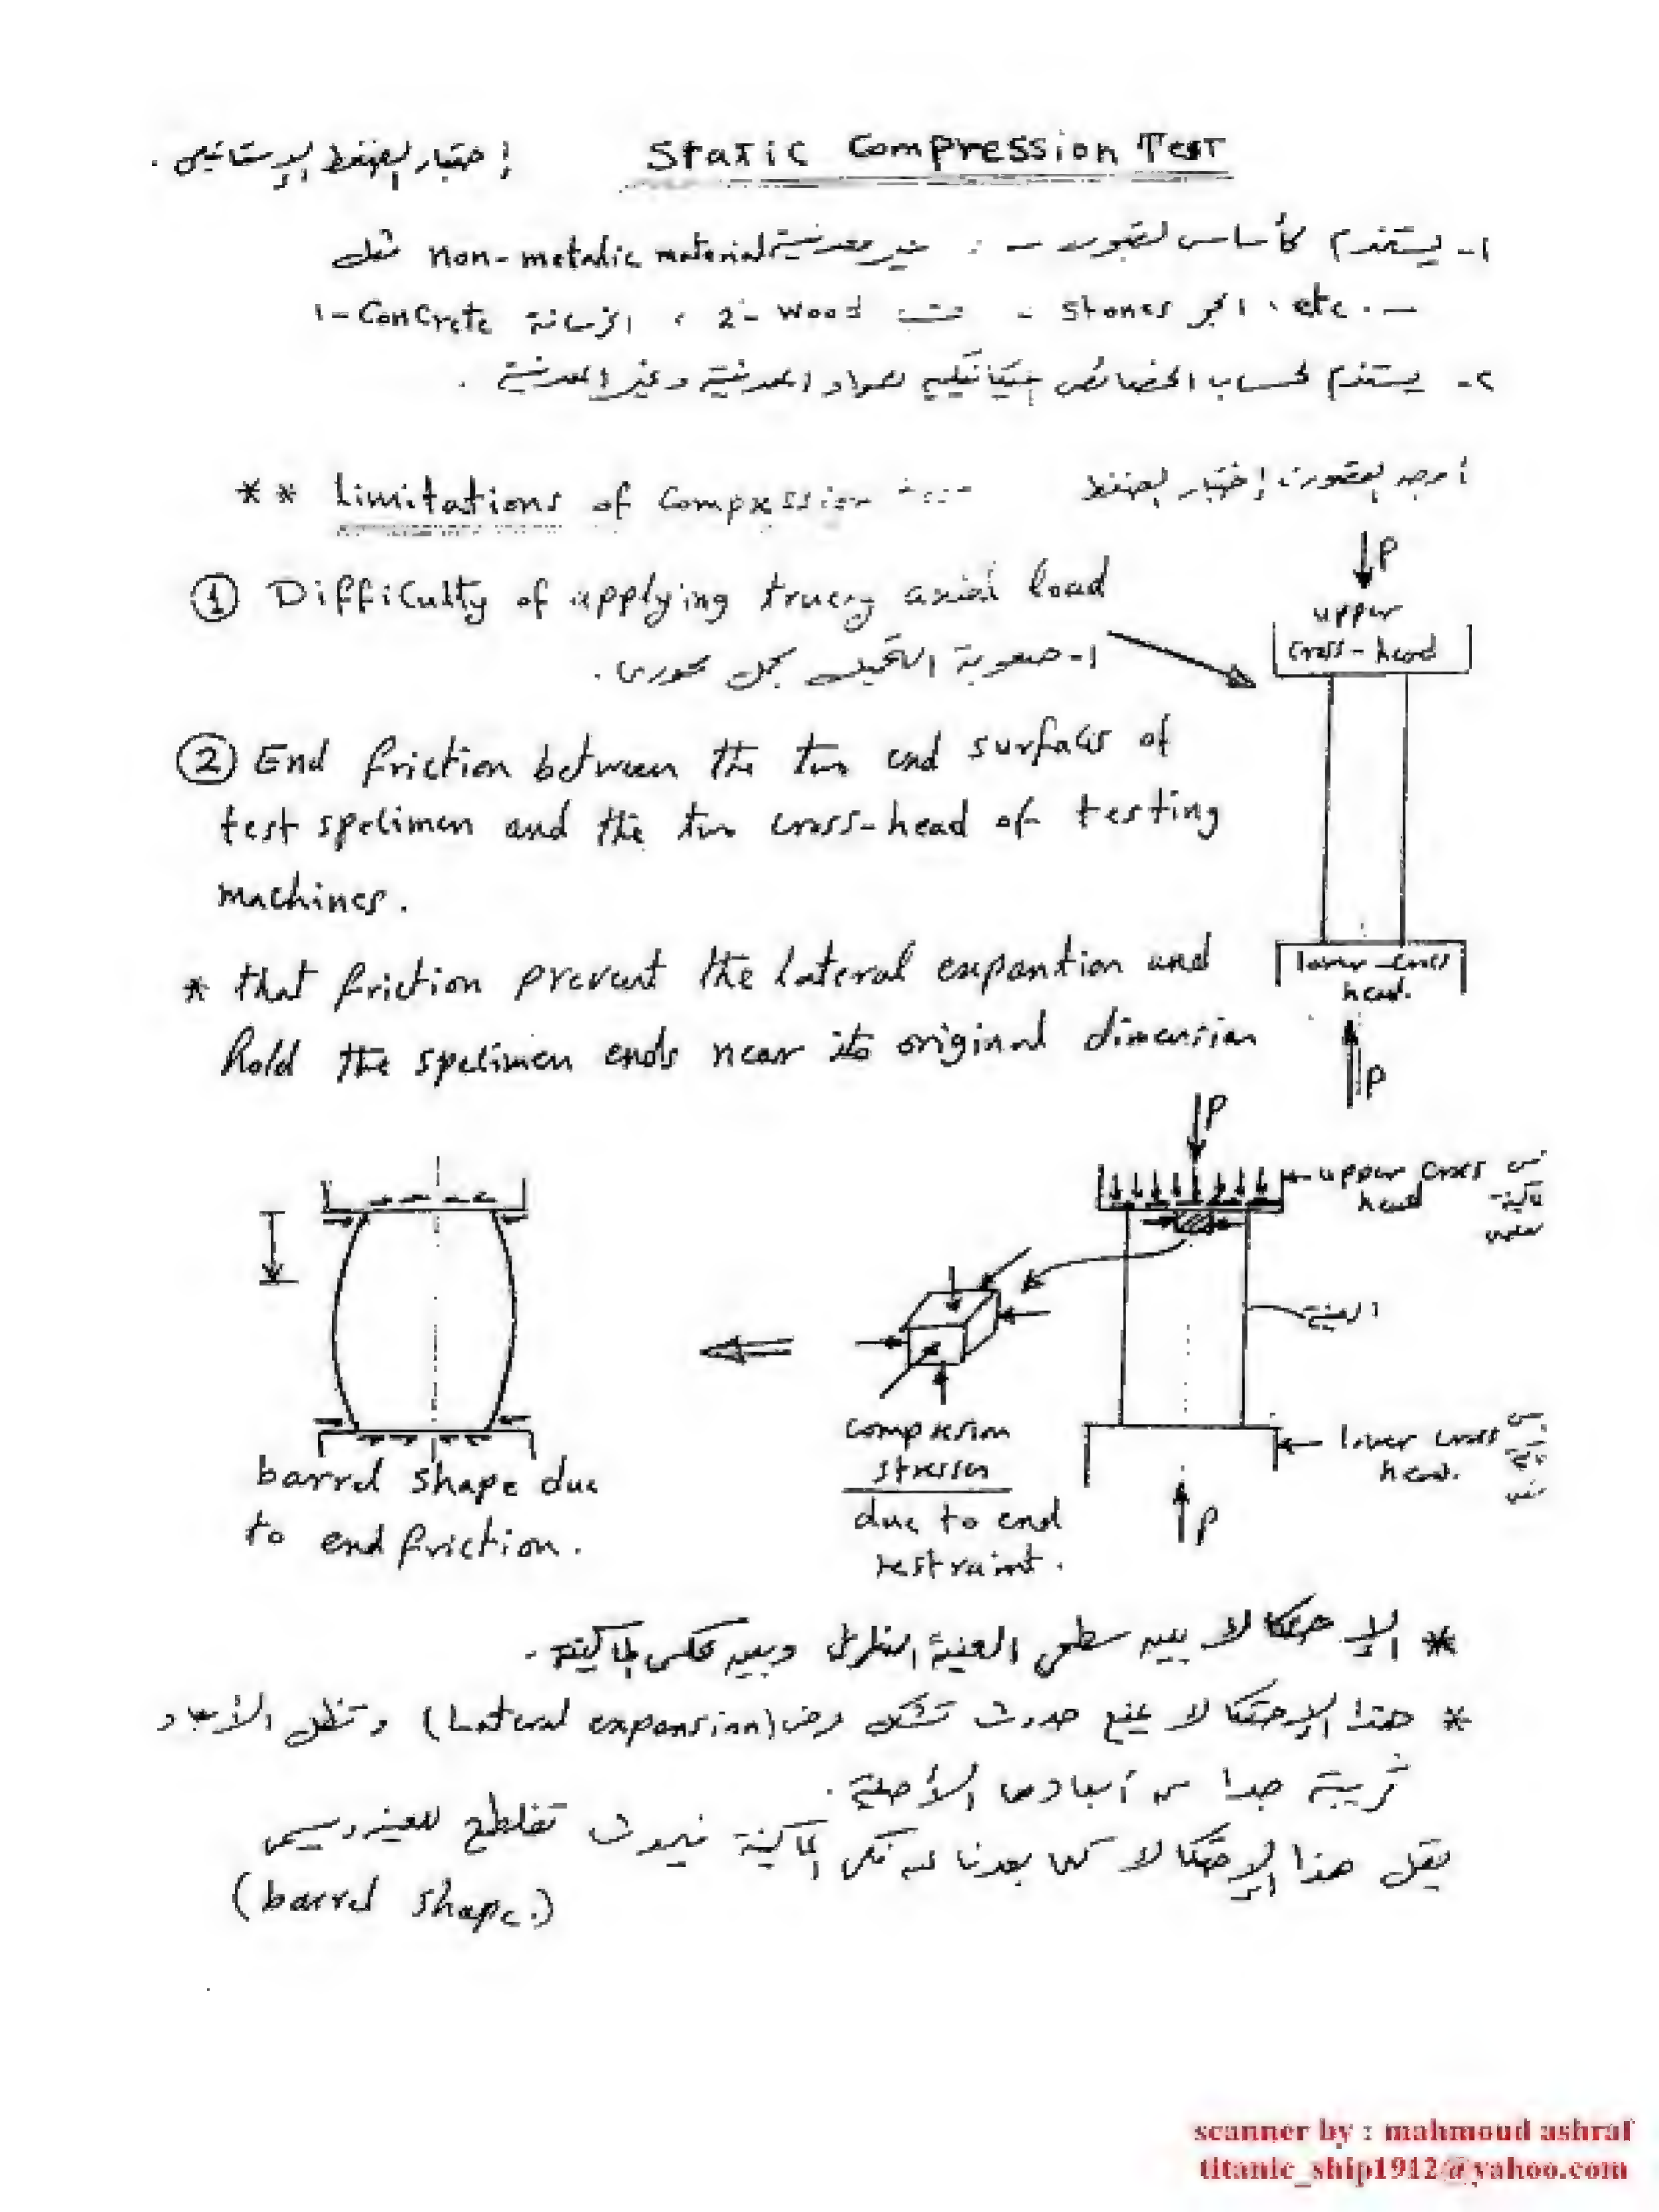 Static Compression Test إختبار الضغط الإستاتيكى .
١- يستخدم كأساس لقبول غير معدنية non-metalic material مثل
1- Concrete الخرسانة ، 2- wood خشب - stones الحجر ، etc. -
٢- يستخدم لحساب الخصائص الميكانيكية للمواد المعدنية وغير المعدنية .
** Limitations of Compression أوجه القصور فى إختبار الضغط
① Difficulty of applying truely axial load
١- صعوبة التحميل بحمل محورى .
② End friction between the two end surfaces of
test specimen and the two cross-head of testing
machines.
* that friction prevent the lateral expantion and
hold the specimen ends near its original dimension
P
upper
cross-head
lower cross
head.
P
P
upper cross
head
العينة
lower cross
head.
P
compression
stresses
due to end
restraint.
barrel shape due
to end friction.
* الإحتكاك بين سطحى العينة وبين فكى الماكينة .
* هذا الإحتكاك يمنع حدوث تشكل (Lateral expansion) وتظل الأبعاد
قريبة جدا من أبعادها الأصلية .
يقل هذا الإحتكاك كلما بعدنا عن فكى الماكينة فيحدث تفلطح للعينة ويسمى
(barrel shape.)
scanner by : mahmoud ashraf
titanic_ship1912@yahoo.com